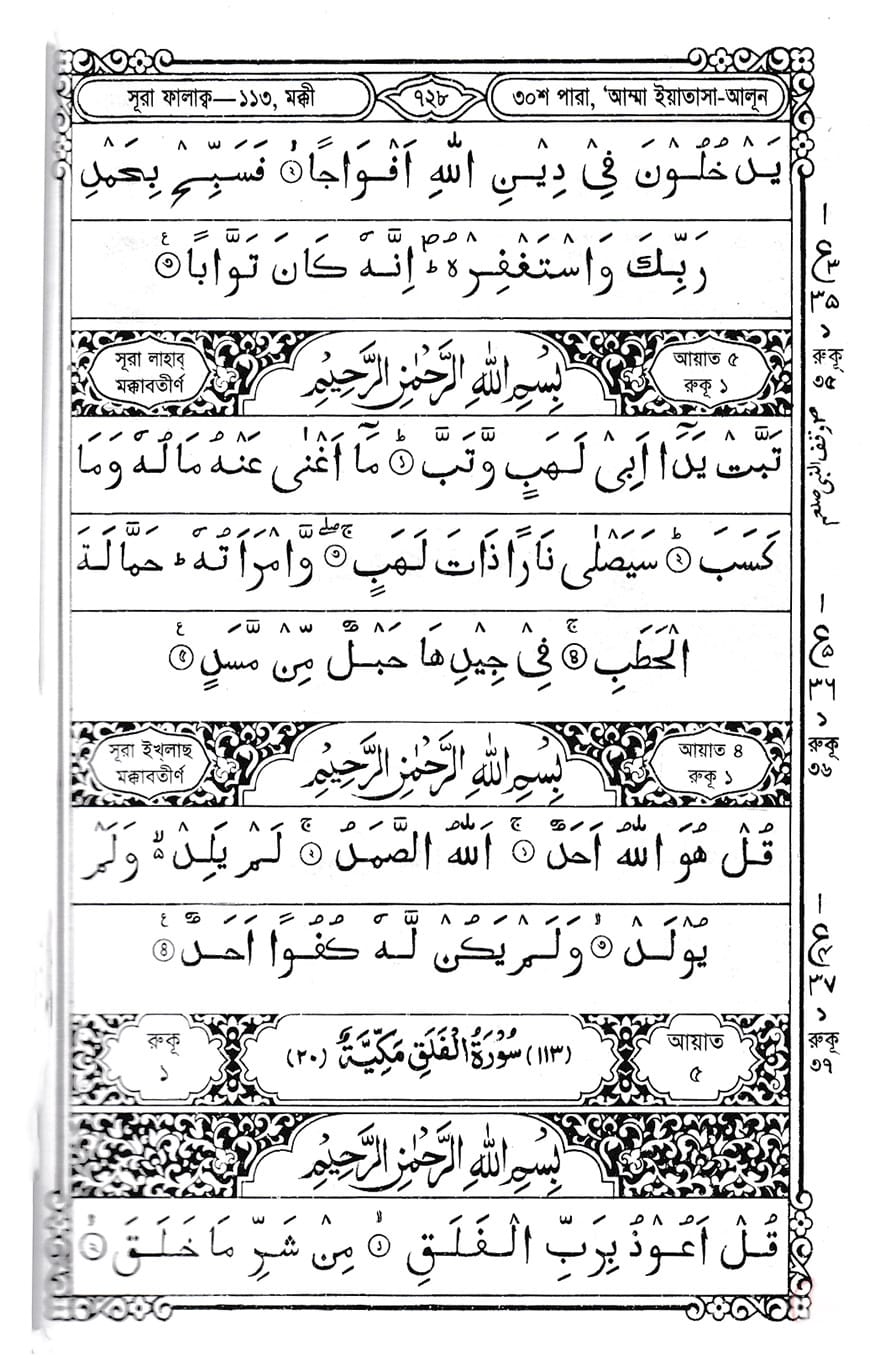 সূরা ফালাক্ব—১১৩, মক্কী ৭২৮ ৩০শ পারা, ‘আম্মা ইয়াতাসা-আলূন
يَدْخُلُوْنَ فِيْ دِيْنِ اللّٰهِ اَفْوَاجًا ② فَسَبِّحْ بِحَمْدِ
رَبِّكَ وَاسْتَغْفِرْهُ ؕ اِنَّهٗ كَانَ تَوَّابًا ③
সূরা লাহাব্ মক্কাবতীর্ণ
بِسْمِ اللّٰهِ الرَّحْمٰنِ الرَّحِيْمِ
আয়াত ৫ রুকূ ১
تَبَّتْ يَدَآ اَبِيْ لَهَبٍ وَّتَبَّ ① مَآ اَغْنٰى عَنْهُ مَالُهٗ وَمَا
كَسَبَ ② سَيَصْلٰى نَارًا ذَاتَ لَهَبٍ ③ وَّامْرَاَتُهٗ ؕ حَمَّالَةَ
الْحَطَبِ ④ فِيْ جِيْدِهَا حَبْلٌ مِّنْ مَّسَدٍ ⑤
সূরা ইখ্‌লাছ মক্কাবতীর্ণ
بِسْمِ اللّٰهِ الرَّحْمٰنِ الرَّحِيْمِ
আয়াত ৪ রুকূ ১
قُلْ هُوَ اللّٰهُ اَحَدٌ ① اَللّٰهُ الصَّمَدُ ② لَمْ يَلِدْ وَلَمْ
يُوْلَدْ ③ وَلَمْ يَكُنْ لَّهٗ كُفُوًا اَحَدٌ ④
রুকূ ১
(١١٣) سُوْرَةُ الْفَلَقِ مَكِّيَّةٌ (٢٠)
আয়াত ৫
بِسْمِ اللّٰهِ الرَّحْمٰنِ الرَّحِيْمِ
قُلْ اَعُوْذُ بِرَبِّ الْفَلَقِ ① مِنْ شَرِّ مَا خَلَقَ ②
ع ٣ ٣٥
১ রুকূ ৩৫
وقف النبي صلعم
ع ٥ ٣٦
১ রুকূ ৩৬
ع ٤ ٣٧
১ রুকূ ৩৭